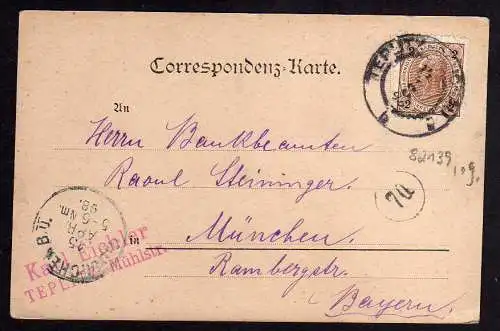 Correspondenz-Karte.
An
Herrn Bankbeamten
Raoul Steininger.
in München.
Rambergstr.
Bayern.
Karl Eichler
TEPLITZ, Mühlstr.
MÜNCHEN B.Ü.
25
APR.
5-6 Nm.
98.
TEPLITZ
82139